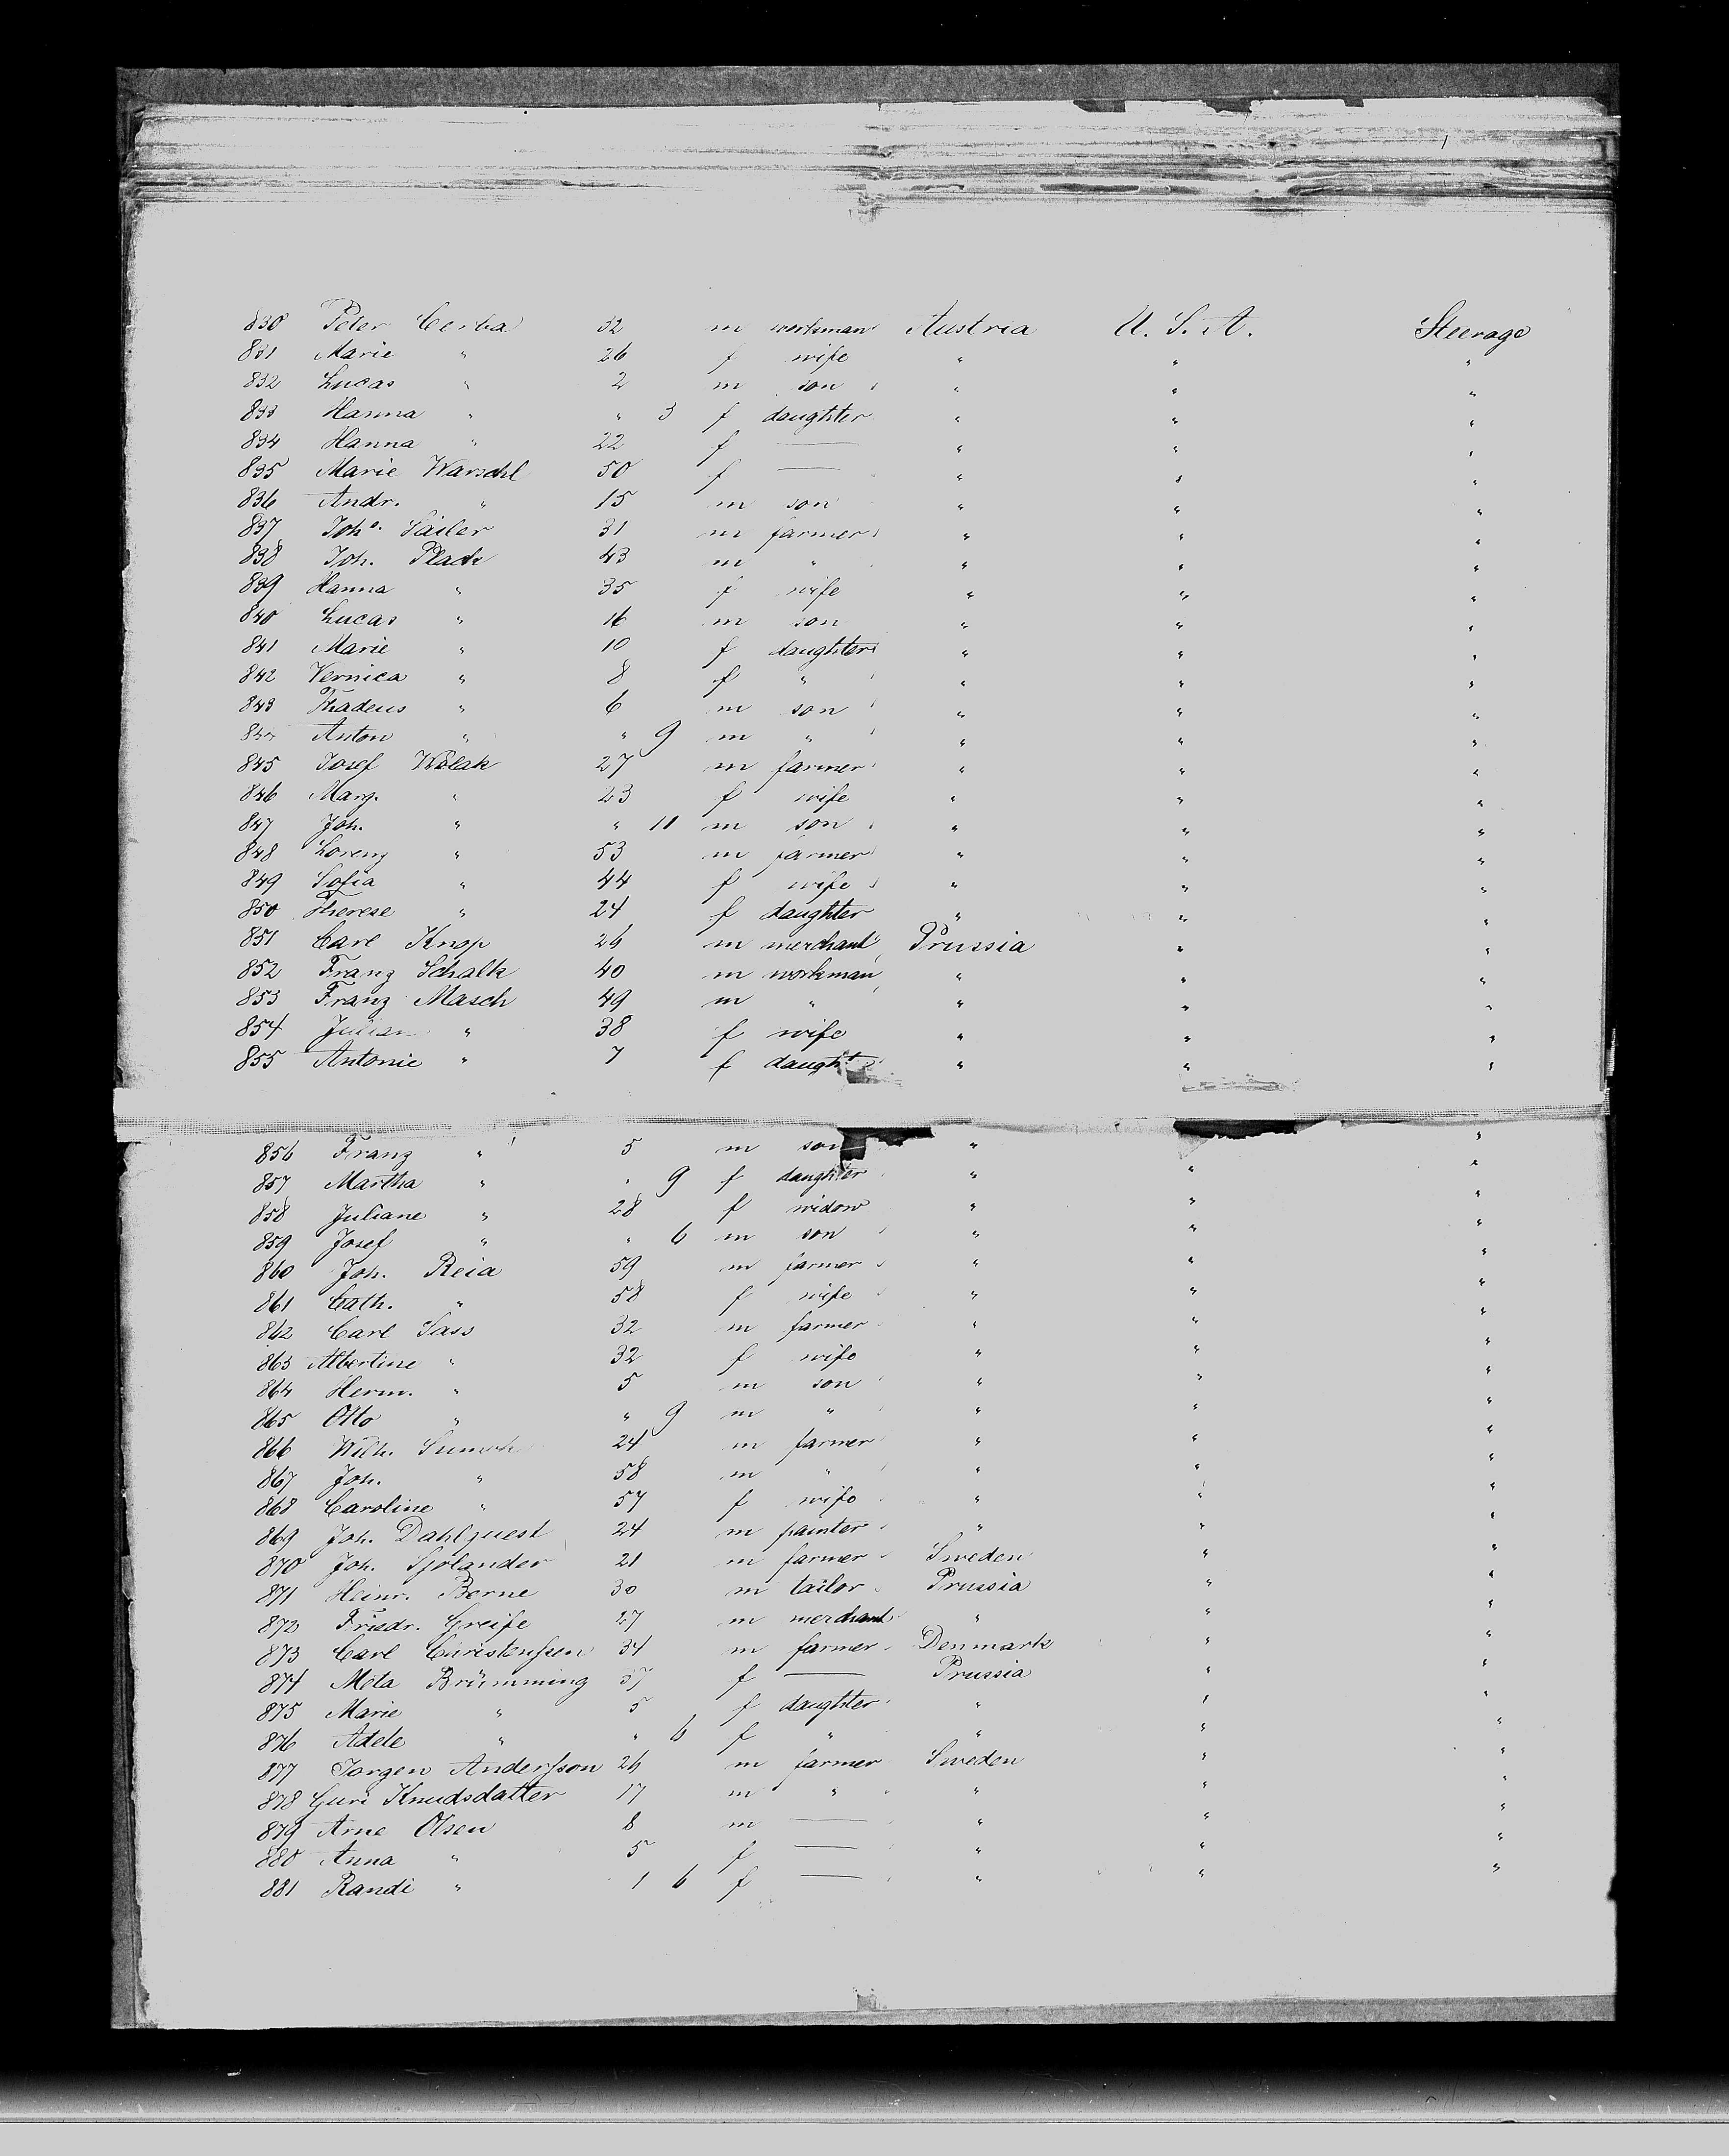 830 Peter Cerba 32 m workman Austria U. S. A. Steerage
831 Marie " 26 f wife " " "
832 Lucas " 2 m son " " "
833 Hanna " " 3 f daughter " " "
834 Hanna " 22 f — " " "
835 Marie Warschl 50 f — " " "
836 Andr. " 15 m son " " "
837 Joh. Sailer 31 m farmer " " "
838 Joh. Plack 43 m " " " "
839 Hanna " 35 f wife " " "
840 Lucas " 16 m son " " "
841 Marie " 10 f daughter " " "
842 Vernica " 8 f " " " "
843 Thadeus " 6 m son " " "
844 Anton " " 9 m " " " "
845 Josef Walak 27 m farmer " " "
846 Marg. " 23 f wife " " "
847 Joh. " " 11 m son " " "
848 Lorenz " 53 m farmer " " "
849 Sofia " 44 f wife " " "
850 Therese " 24 f daughter " " "
851 Carl Knop 26 m merchant Prussia " "
852 Franz Schalk 40 m workman " " "
853 Franz Masch 49 m " " " "
854 Julian " 38 f wife " " "
855 Antonie " 7 f daught " " "
856 Franz " 5 m son " "
857 Martha " " 9 f daughter " " "
858 Juliane " 28 f widow " " "
859 Josef " " 6 m son " " "
860 Joh. Reia 59 m farmer " " "
861 Cath. " 58 f wife " " "
862 Carl Sass 32 m farmer " " "
863 Albertine " 32 f wife " " "
864 Herm. " 5 m son " " "
865 Otto " " 9 m " " " "
866 Wilh. 24 m farmer " " "
867 Joh. " 58 m " " " "
868 Caroline " 57 f wife " " "
869 Joh. Dahlquest 24 m painter " " "
870 Joh. Sjolander 21 m farmer Sweden " "
871 Heinr. Berne 30 m tailor Prussia " "
872 Friedr. Greife 27 m merchant " " "
873 Carl Christenssen 34 m farmer Denmark " "
874 Meta Brümming 37 f — Prussia " "
875 Marie " 5 f daughter " " "
876 Adele " " 6 f " " " "
877 Jorgen Andersson 26 m farmer Sweden " "
878 Guri Knudsdatter 17 m " " " "
879 Arne Olsen 8 m — " " "
880 Anna " 5 f — " " "
881 Randi " 1 6 f — " " "